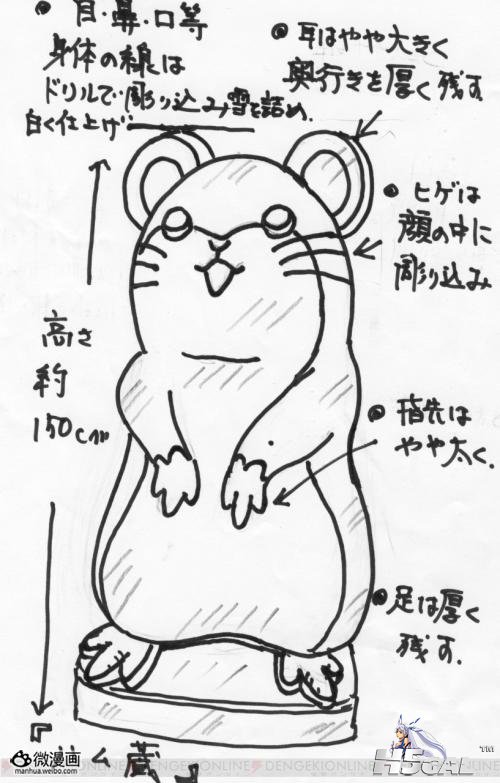 • 目・鼻・口等
身体の線は
ドリルで彫り込み雪を詰め、
白く仕上げ
• 耳はやや大きく
奥行きを厚く残す
• ヒゲは
顔の中に
彫り込み
高さ
約
150cm
• 指先は
やや太く、
• 足は厚く
残す、
く蔵』
微漫画
manhua.weibo.com
DENGEKIONLINE DENGEKIONLINE DENGEKIONLINE
TM